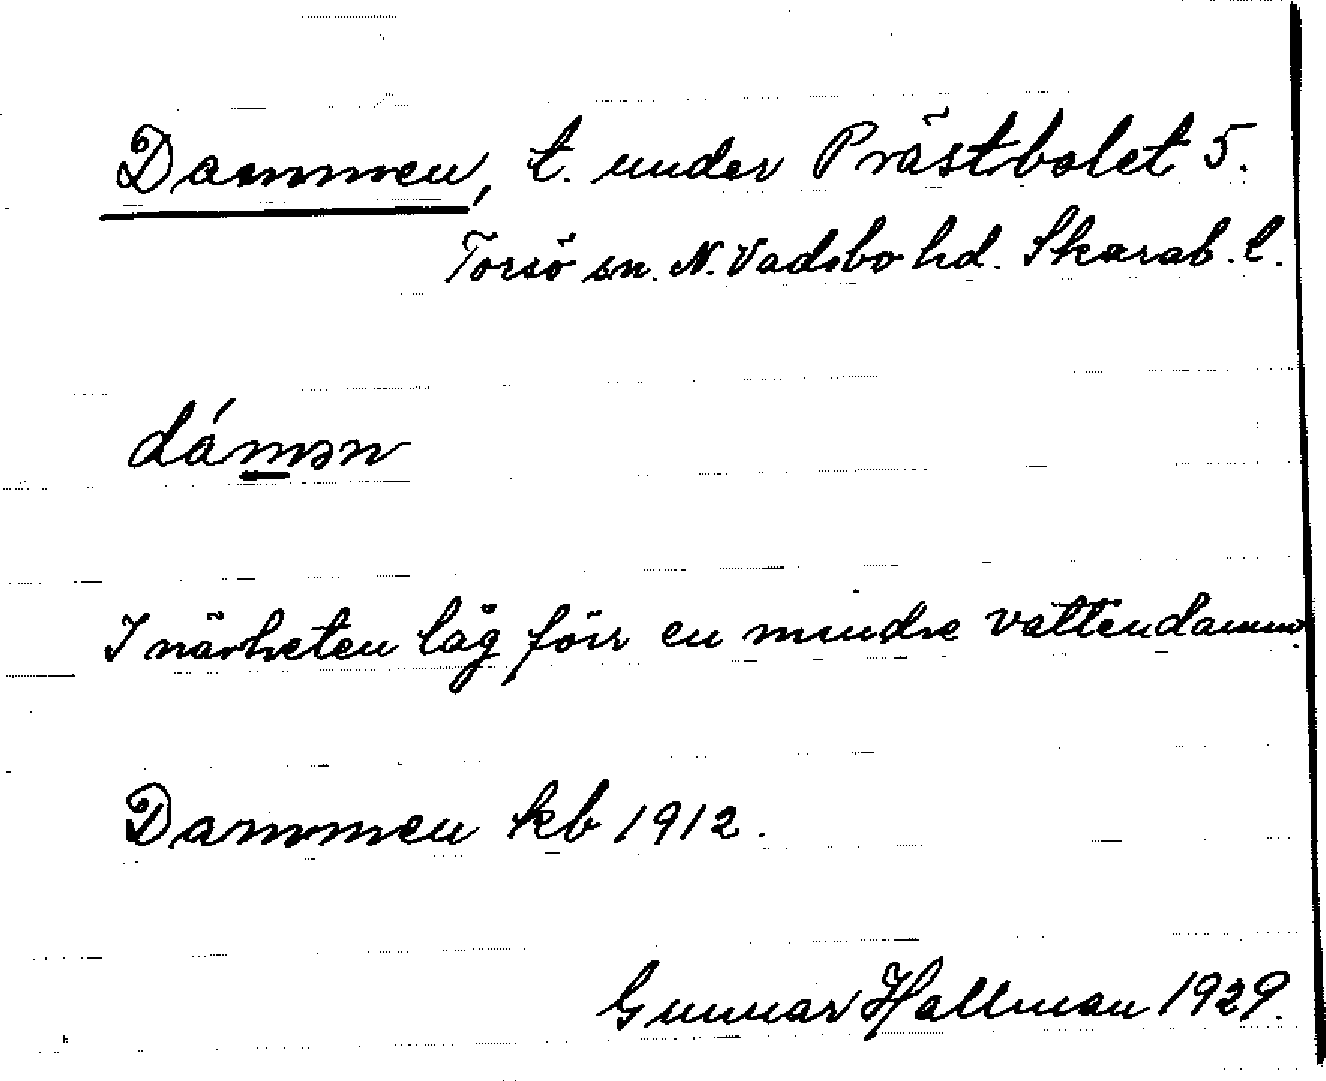 Dammen, t. under Prästbolet 5.
Torsö sn. N. Vadsbo hd. Skarab. l.
dámən
I närheten låg förr en mindre vattendamm.
Dammen kb 1912.
Gunnar Hallman 1929.